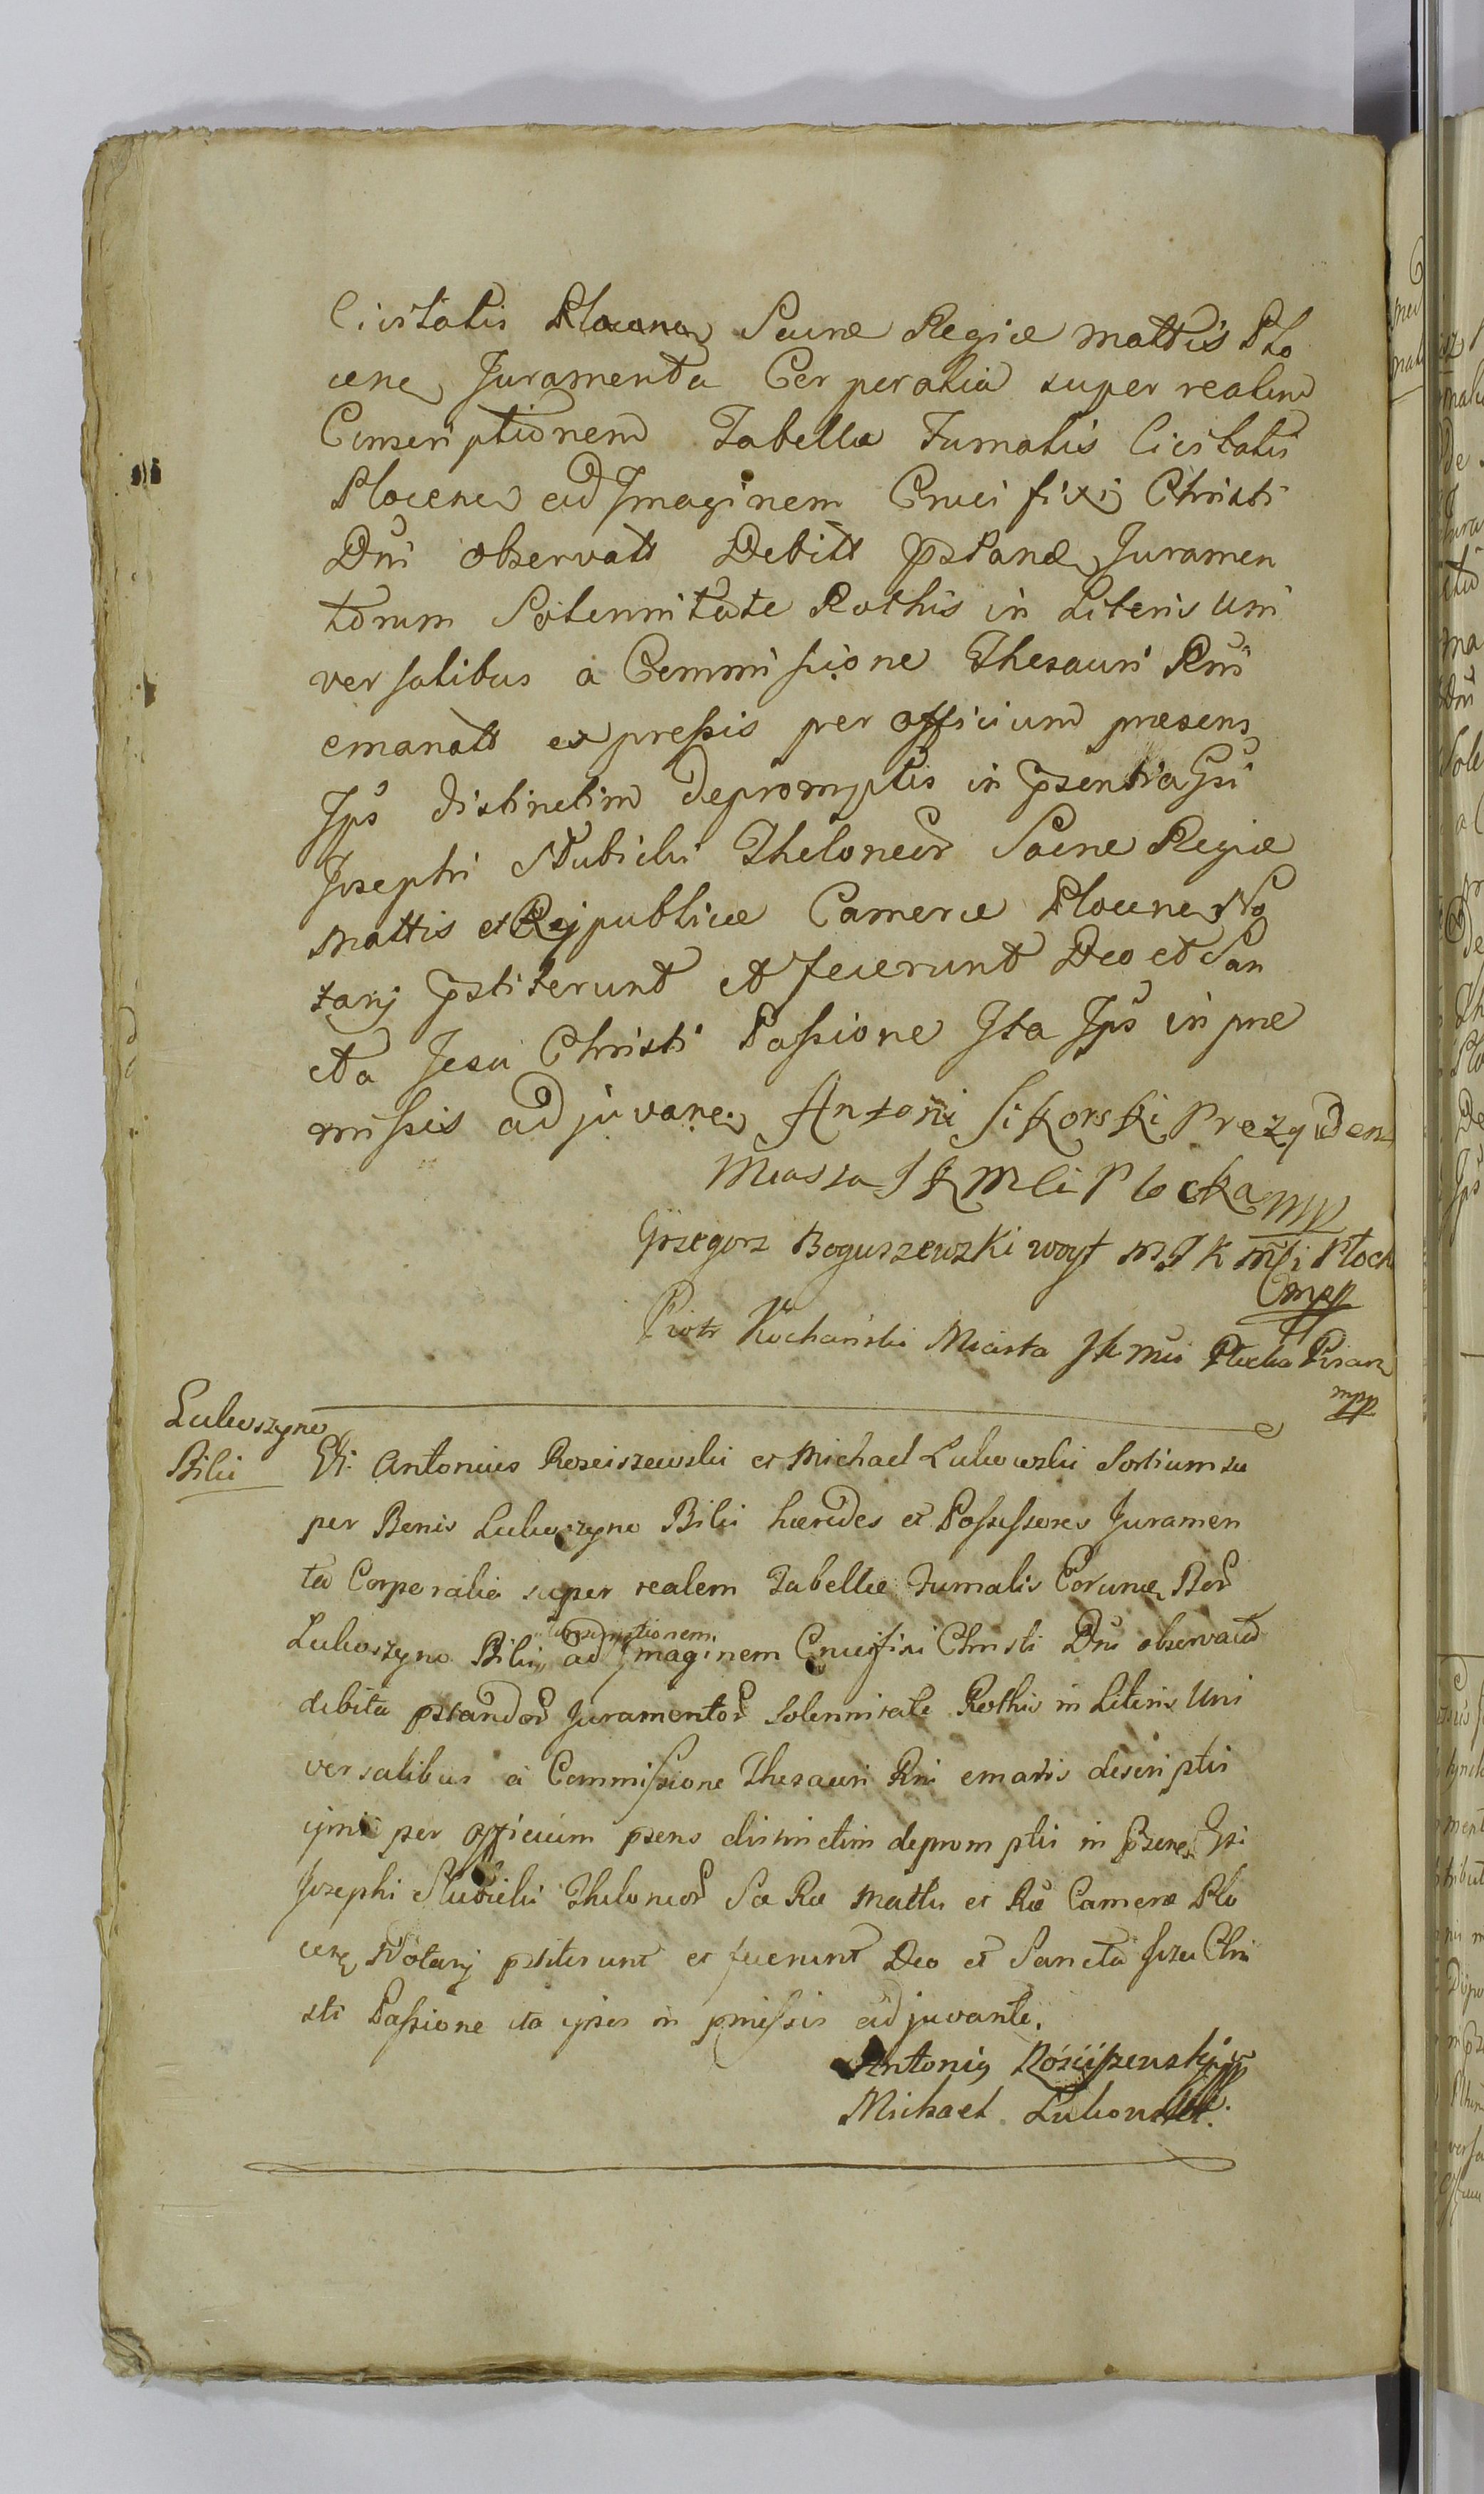 Civitatis Plocen Sacræ Regiæ Mattis Plo
cen Juramenta Corporalia super realem
Conscriptionem Tabellæ Fumalis Civitatis
Plocen ad Imaginem Crucifixi Christi
Dni observatt Debitt pstand Juramen
torum Solennitate Rothis in Literis Uni
versalibus a Commissione Thesauri Rni
emanatt expressis per Officium præsens
Ips distinctim depromptis in psentia Gsi
Josephi Słubicki Theloneor Sacræ Regiæ
Mattis et Reipublicæ Cameræ Plocen No
tarij pstiterunt et fecerunt Deo et San
cta Jesu Christi Passione Ita Ips in præ
missis adjuvane. Antoni Sikorski Prezyden
Miasta J K Mci Płocka mp
Grzegorz Boguszewski woyt M J K Mci Płock
mpp
Piotr Kochański Miasta JK Mci Płocka Pisarz
mpp
Lukoszyno
Biki
Gsi Antonius Rosciszewski et Michael Lukowski Sortium su
per Bonis Lukoszyno Biki hæredes et Possessores Juramen
ta Corporalia super realem Tabellæ Fumalis Eorund Bor
conscriptionem
Lukoszyno Biki ad Imaginem Crucifixi Christi Dni observata
debita pstandor Juramentor Solennitate Rothis in Literis Uni
versalibus a Commissione Thesauri Rni ematis descriptis
ipsis per Officium psens distinctim depromptis in psene Gsi
Josephi Słubicki Theloneor Sæ Ræ Mattis et Ræ Cameræ Plo
cen Notarij pstiterunt et fecerunt Deo et Sancta Jesu Chri
sti Passione ita ipsos in pmissis adjuvante.
Antoniy Rościszewski mpp
Michael Lukowski